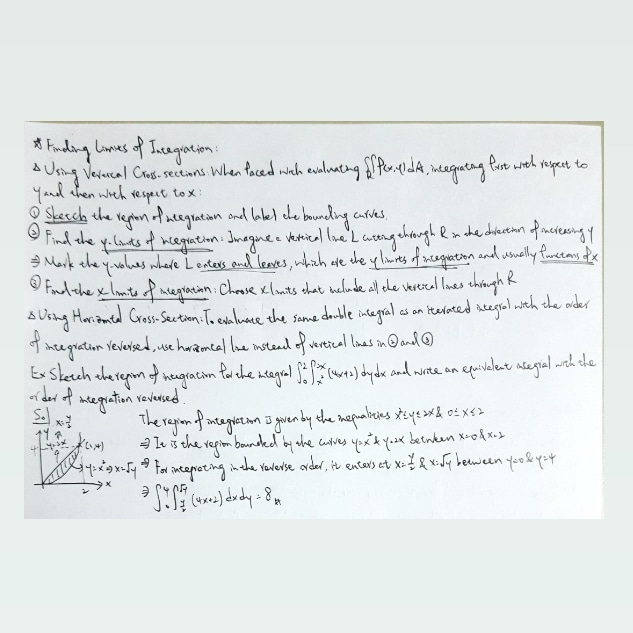 * Finding Limits of Integration:
△ Using Vertical Cross-sections: When faced with evaluating ∬_R f(x,y)dA, integrating first with respect to
y and then with respect to x:
① Sketch the region of integration and label the bounding curves.
② Find the y-limits of integration: Imagine a vertical line L cutting through R in the direction of increasing y
⇒ Mark the y-values where L enters and leaves, which are the y limits of integration and usually functions of x
③ Find the x-limits of integration: Choose x limits that include all the vertical lines through R
△ Using Horizontal Cross-Section: To evaluate the same double integral as an iterated integral with the order
of integration reversed, use horizontal line instead of vertical lines in ② and ③
Ex Sketch the region of integration for the integral ∫₀² ∫_{x²}^{2x} (4x+2) dy dx and write an equivalent integral with the
order of integration reversed.
Sol
The region of integration is given by the inequalities x²≤y≤2x & 0≤x≤2
⇒ It is the region bounded by the curves y=x² & y=2x between x=0 & x=2
⇒ For integrating in the reverse order, it enters at x=y/2 & x=√y between y=0 & y=4
⇒ ∫₀⁴ ∫_{y/2}^{√y} (4x+2) dx dy = 8
x=y/2
y
y=2x
(2,4)
y=x² ⇒ x=√y
2
x